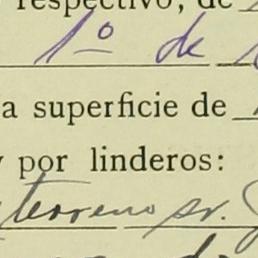 respectivo, de
1º de
a superficie de
y por linderos:
terreno sr.